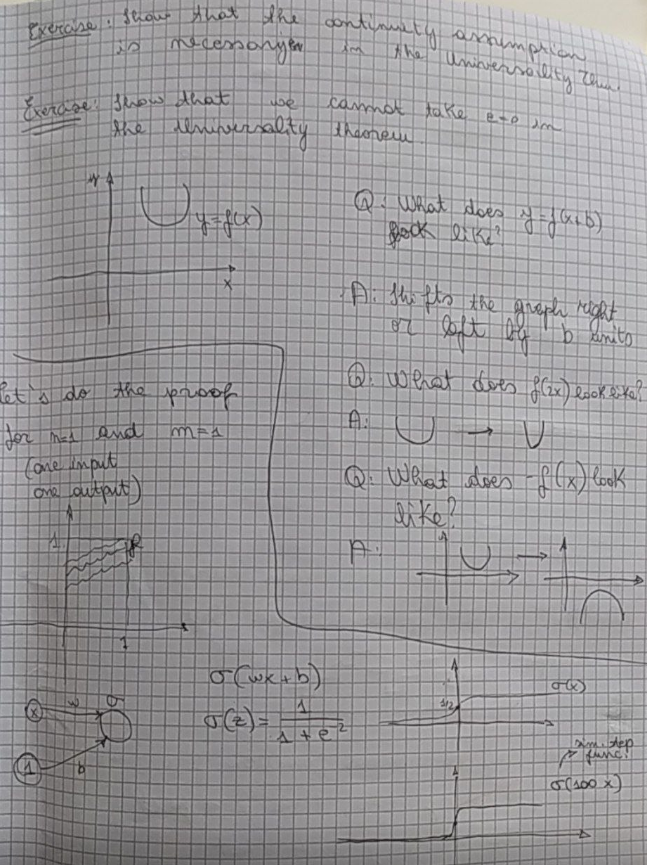 Exercise: Show that the continuity assumption
is necessary in the Universality Thm.
Exercise: Show that we cannot take ε=0 in
the Universality theorem.
y
y=f(x)
x
Q: What does y=f(x+b)
look like?
A: Shifts the graph right
or left by b units
Q: What does f(2x) look like?
A:
Q: What does -f(x) look
like?
A:
Let's do the proof
for n=1 and m=1
(one input
one output)
1
f
1
x
w
σ
1
b
σ(wx+b)
σ(z) = 1 / 1 + e^z
1/2
σ(x)
sim. step
func.
σ(100x)